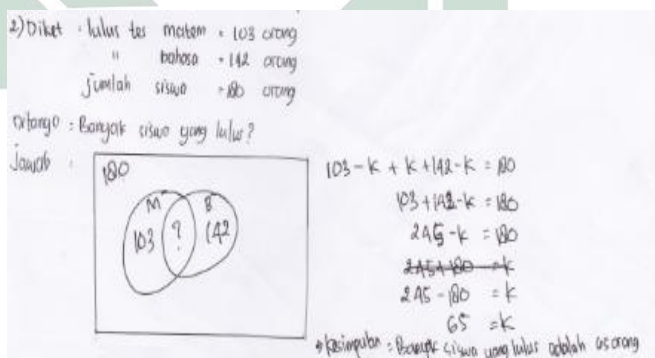 2) Diket : lulus tes matem = 103 orang
" bahasa = 142 orang
jumlah siswa = 180 orang
Ditanya : Banyak siswa yang lulus?
Jawab :
180
M B
103 ? 142
103 - k + k + 142 - k = 180
103 + 142 - k = 180
245 - k = 180
245 + 180 = k
245 - 180 = k
65 = k
Kesimpulan : Banyak siswa yang lulus adalah 65 orang